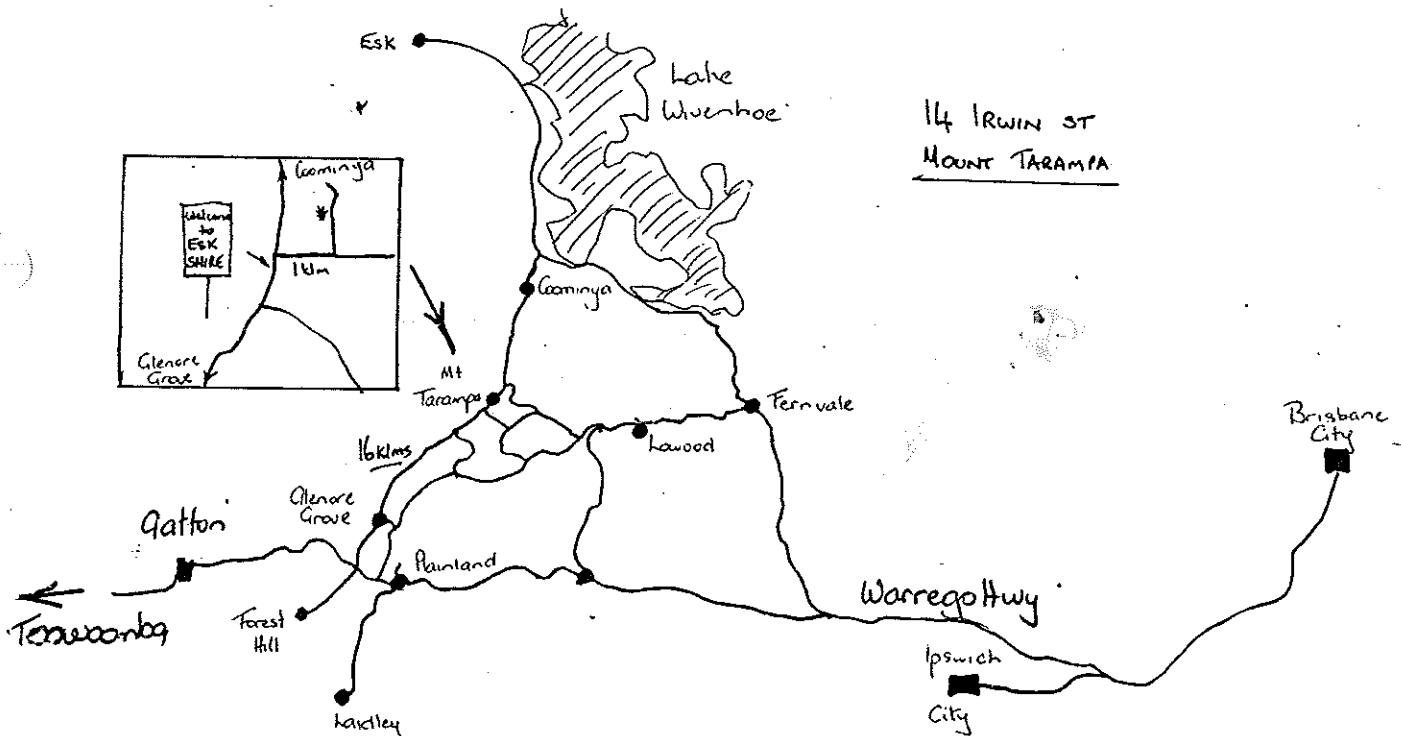 Esk
Lake
Wivenhoe
14 IRWIN ST
MOUNT TARAMPA
Coominya
Welcome
to
ESK
SHIRE
1klm
Glenore
Grove
Coominya
Mt
Tarampa
Fernvale
Lowood
Brisbane
City
16klms
Glenore
Grove
Gatton
Plainland
Warrego Hwy
Toowoomba
Forest
Hill
Ipswich
City
Laidley